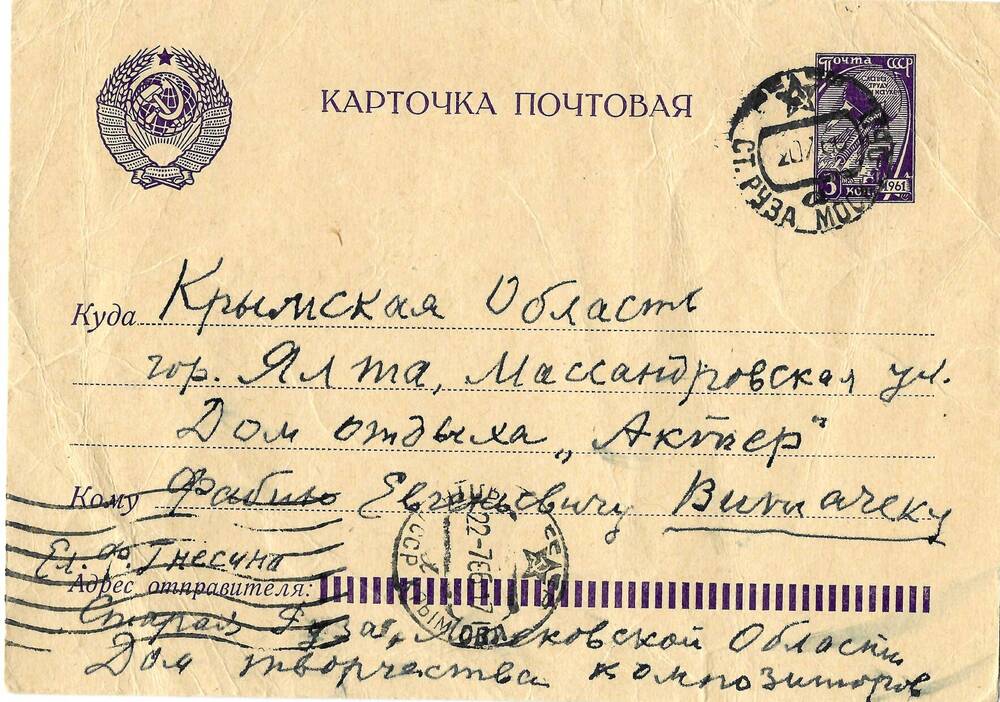 КАРТОЧКА ПОЧТОВАЯ
Почта СССР
3 коп. 1961
СТ. РУЗА МОС
Куда Крымская Область
гор. Ялта, Массандровская ул.
Дом отдыха „Актер“
Кому Фабию Евгеньевичу Витачеку
Ел. Ф. Гнесина
Адрес отправителя:
Старая Руза, Московской Области
Дом творчества композиторов